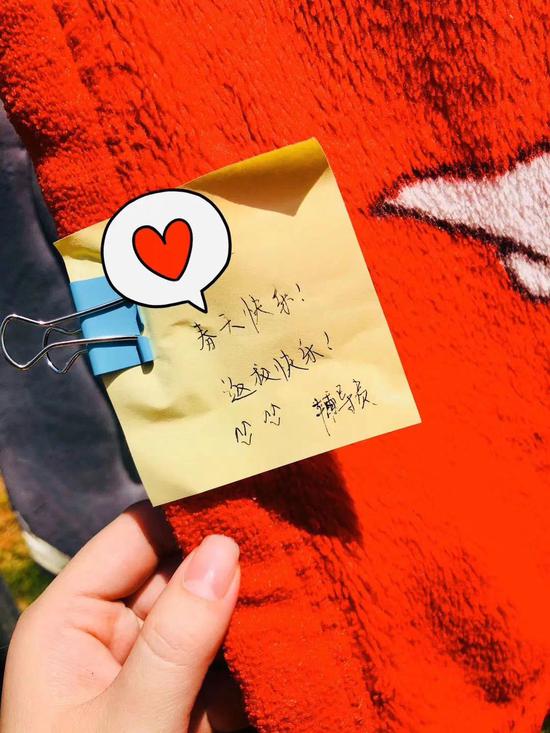 春天快乐!
返校快乐!
辅导员